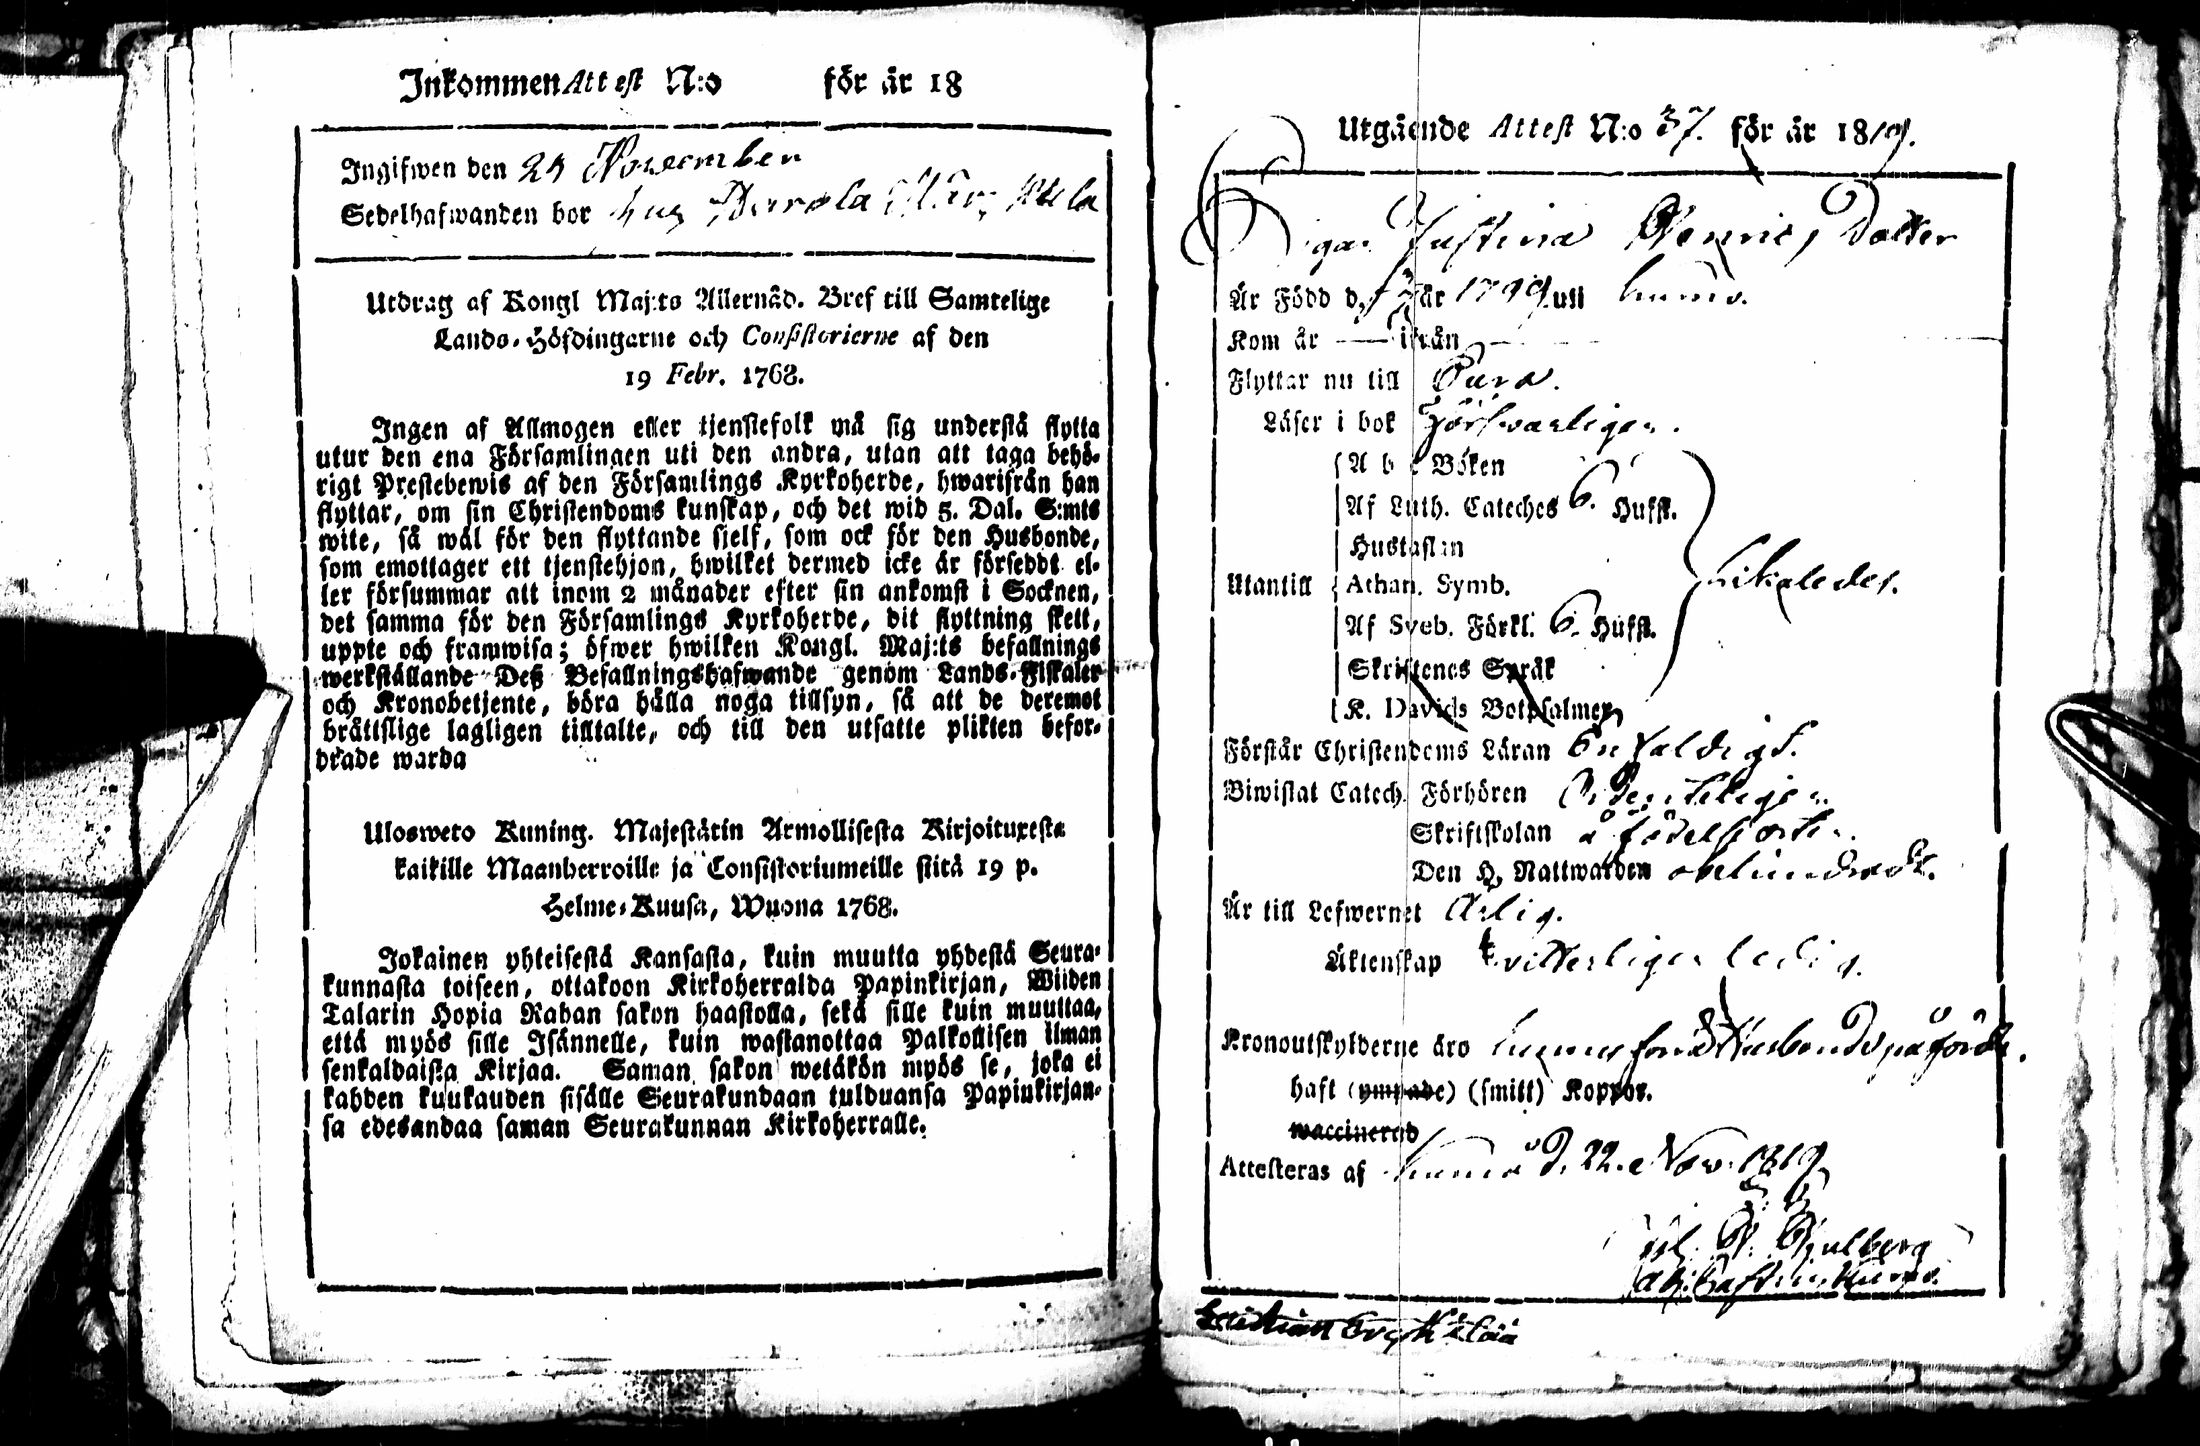 Inkommen Attest N:o för år 18
Ingifwen den 24 November
Sedelhafwanden bor hus
Utdrag af Kongl Maj:ts Allernåd. Bref till Samtelige
Lands-Höfdingarne och Consistorierne af den
19 Febr. 1768.
Ingen af Allmogen eller tjenstefolk må sig understå flytta
utur den ena Församlingen uti den andra, utan att taga behö-
rigt Prestebewis af den Församlings Kyrkoherde, hwarifrån han
flyttar, om sin Christendoms kunskap, och det wid 5. Dal. S:mts
wite, så wäl för den flyttande sjelf, som ock för den Husbonde,
som emottager ett tjenstehjon, hwilket dermed icke är försedt el-
ler försummar att inom 2 månader efter sin ankomst i Socknen,
det samma för den Församlings Kyrkoherde, dit flyttning skett,
uppte och framwisa; öfwer hwilken Kongl. Maj:ts befallnings
werkställande Deß Befallningshafwande genom Lands-Fiskaler
och Kronobetjente, böra hålla noga tillsyn, så att de deremot
bråttslige lagligen tilltalte, och till den utsatte plikten befor-
drade warda
Ulosweto Kuning. Majestätin Armollisesta Kirjoituxesta
kaikille Maanherroille ja Consistoriumeille siitä 19 p.
Helme-Kuusa, Wuona 1768.
Jokainen yhteisestä Kansasta, kuin muutta yhdestä Seura-
kunnasta toiseen, ottakoon Kirkoherralda Papinkirjan, Wiiden
Talarin Hopia Rahan sakon haastolla, sekä sille kuin muuttaa,
että myös sille Isännelle, kuin wastanottaa Palkollisen ilman
senkaldaista Kirjaa. Saman sakon wetäkön myös se, joka ei
kahden kuukauden sisälle Seurakundaan tulduansa Papinkirjan-
sa edesandaa saman Seurakunnan Kirkoherralle.
Utgående Attest N:o 37. för år 1819.
Pigan Justina Dotter
Är Född d. år 1799 uti Kumo.
Kom år — ifrån —
Flyttar nu till Eura.
Läser i bok Förswarligen.
A b c Boken
Af Luth. Cateches 6. Hufst.
Hustaflan
Utantill Athan. Symb.
Likaledes.
Af Sveb. Förkl. 6. Hufst.
Skriftenes Språk
K. Davids Botpsalmer
Förstår Christendoms Läran Enfaldigt.
Biwistat Catech. Förhören Ordenteligen
Skriftskolan å födelseorten.
Den H. Nattwarden obehindradt.
Är till Lefwernet Ärlig.
Äktenskap witterligen ledig.
Kronoutskylderne äro Husbond påförde.
haft (ympade) (smitt) Koppor.
waccinerad
Attesteras af Kumo d. 22. Nov. 1819.